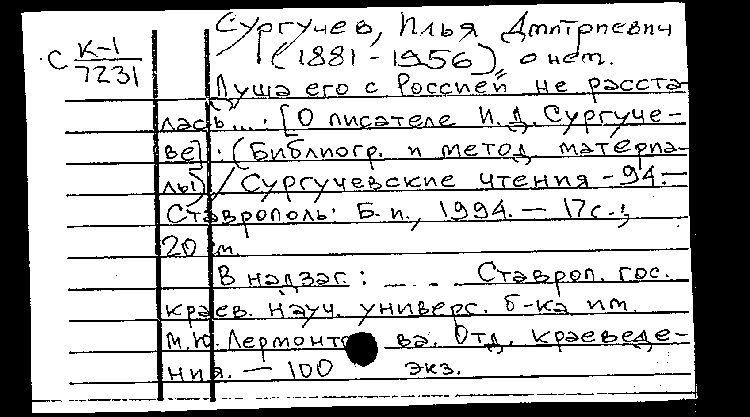 Сургучев, Илья Дмитриевич
С К-1/7231
(1881-1956), о нем.
Душа его с Россией не расста-
лась...: [О писателе И.Д. Сургуче-
ве]: (Библиогр. и метод. материа-
лы) / Сургучевские чтения-94.-
Ставрополь: Б.и., 1994. - 17с.;
20 см.
В надзаг.: .... Ставроп. гос.
краев. науч. универс. б-ка им.
М.Ю. Лермонтова. Отд. краеведе-
ния. - 100 экз.